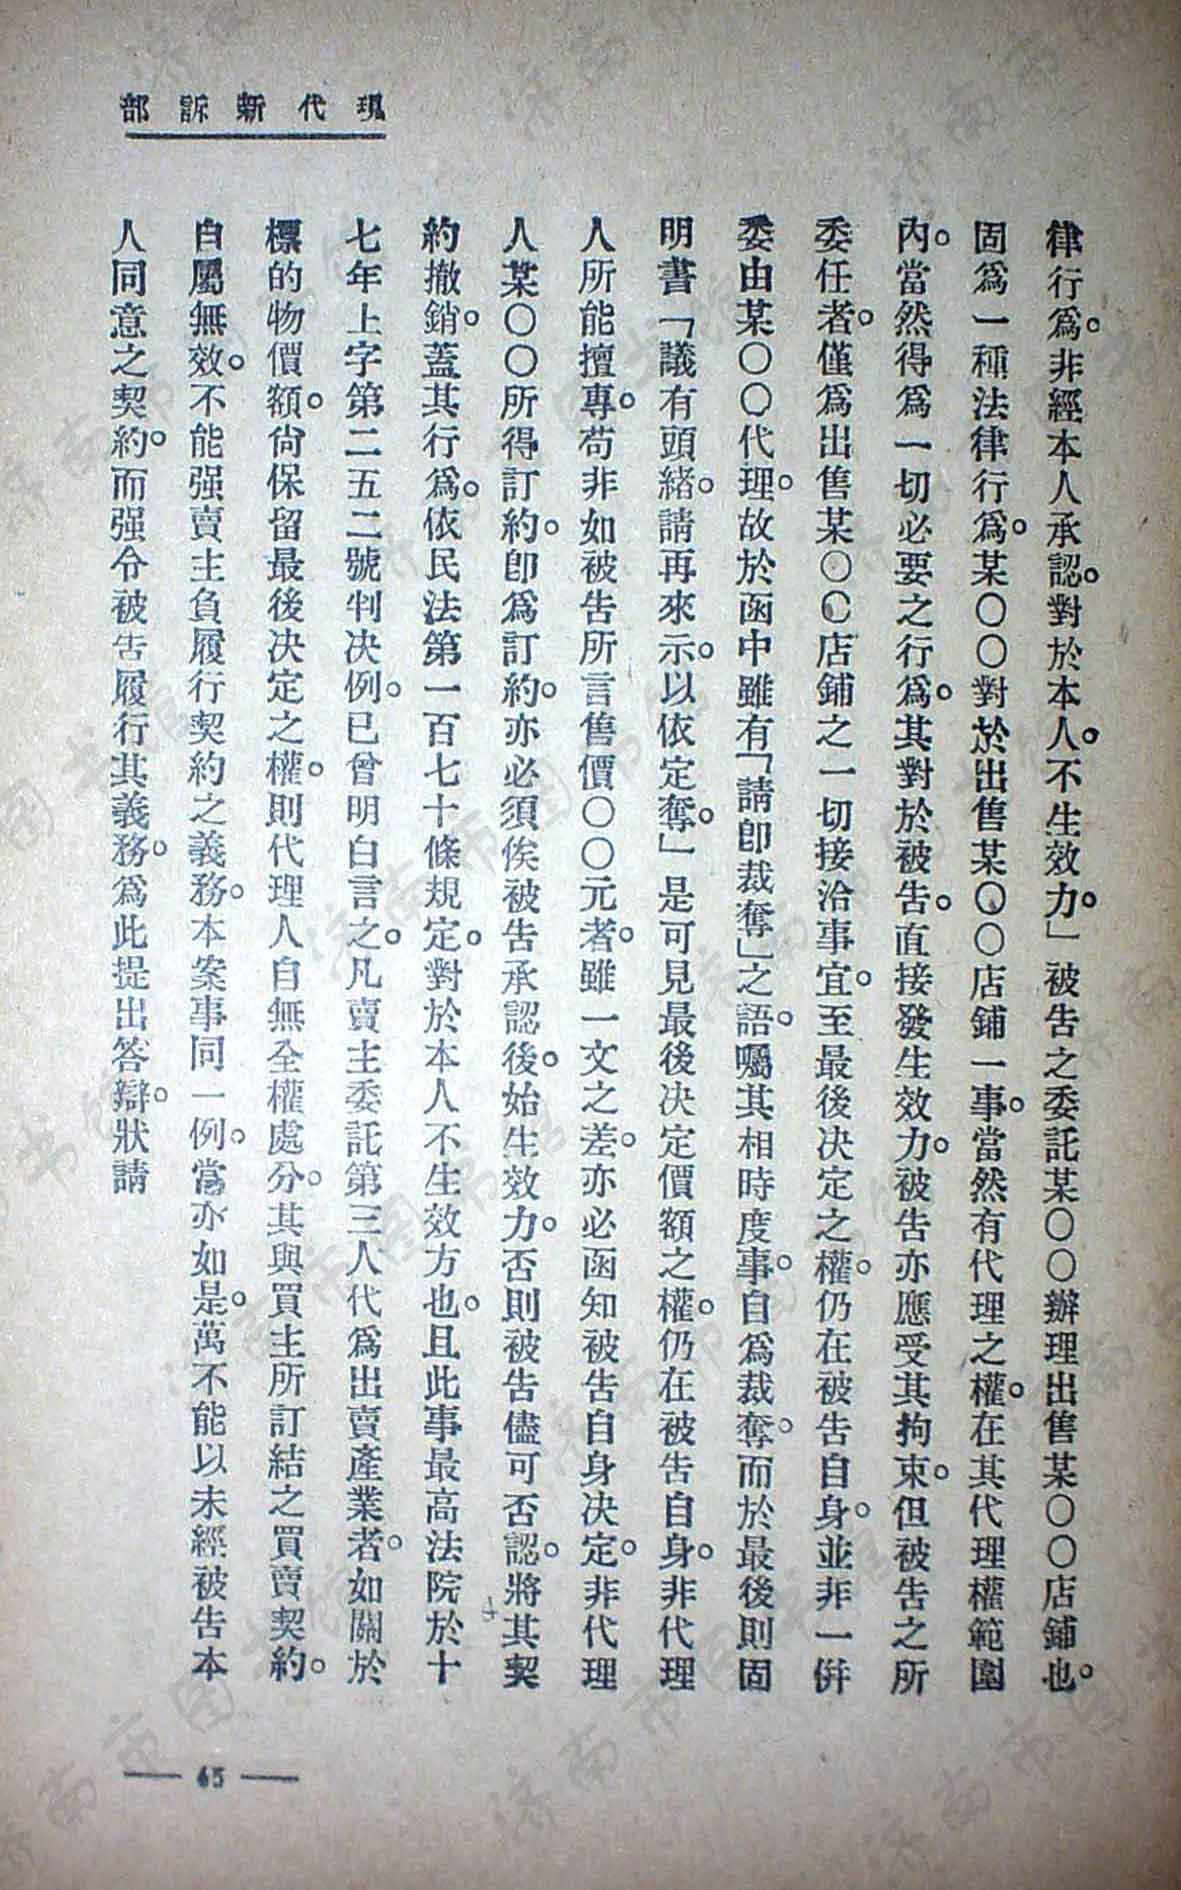 部訴新代現
律行爲。非經本人承認。對於本人。不生效力。」被告之委託某〇〇辦理出售某〇〇店鋪也。
固爲一種法律行爲。某〇〇對於出售某〇〇店鋪一事。當然有代理之權。在其代理權範圍
內。當然得爲一切必要之行爲。其對於被告。直接發生效力。被告亦應受其拘束。但被告之所
委任者。僅爲出售某〇〇店鋪之一切接洽事宜。至最後決定之權。仍在被告自身。並非一併
委由某〇〇代理。故於函中雖有「請卽裁奪」之語。囑其相時度事。自爲裁奪。而於最後則固
明書「議有頭緒。請再來示。以依定奪。」是可見最後決定價額之權。仍在被告自身。非代理
人所能擅專。苟非如被告所言售價〇〇元者。雖一文之差。亦必函知被告自身決定。非代理
人某〇〇所得訂約。卽爲訂約。亦必須俟被告承認後。始生效力。否則被告儘可否認。將其契
約撤銷。蓋其行爲。依民法第一百七十條規定。對於本人不生效方也。且此事最高法院於十
七年上字第二五二號判決例。已曾明白言之。凡賣主委託第三人代爲出賣產業者。如關於
標的物價額。尙保留最後決定之權。則代理人自無全權處分。其與買主所訂結之買賣契約。
自屬無效。不能强賣主負履行契約之義務。本案事同一例。當亦如是。萬不能以未經被告本
人同意之契約。而强令被告履行其義務。爲此提出答辯。狀請
— 65 —